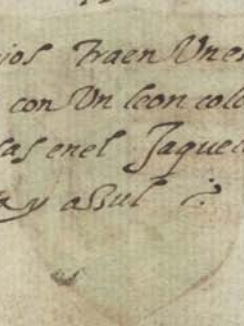 ios traen Un es
con Un leon colo
sas enel Jaquel
a y assul